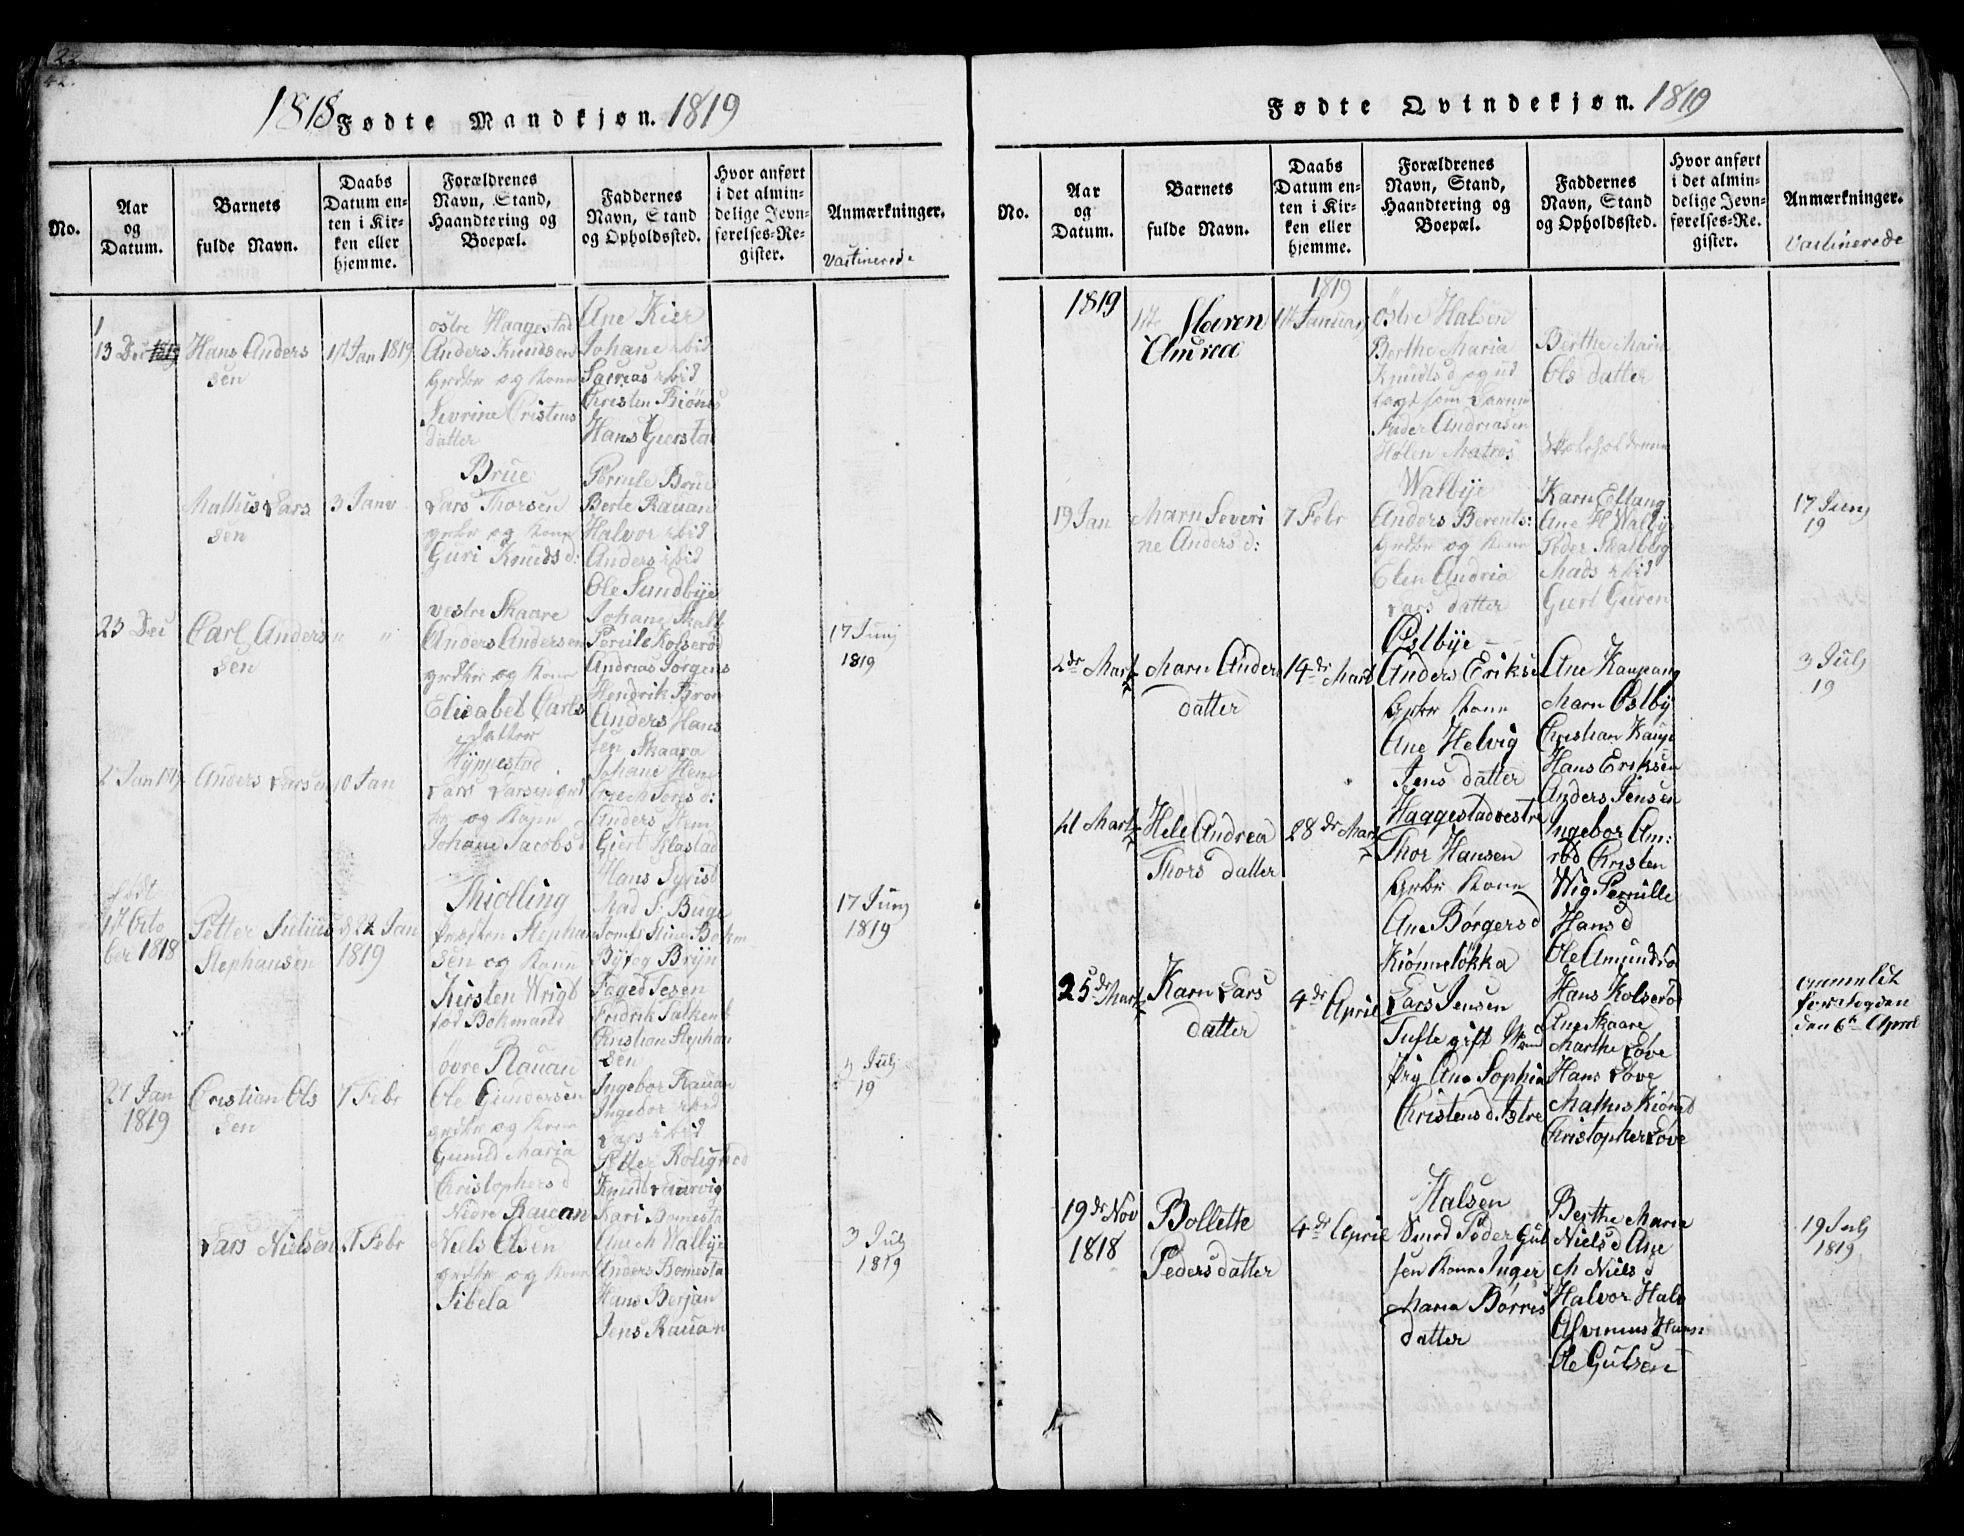 22
42.
1818 Fødte Mandkjøn. 1819
No.
Aar
og
Datum.
Barnets
fulde Navn.
Daabs
Datum en-
ten i Kir-
ken eller
hjemme.
Forældrenes
Navn, Stand,
Haandtering og
Boepæl.
Faddernes
Navn, Stand
og Opholdssted.
Hvor anført
i det almin-
delige Jevn-
førelses-Re-
gister.
Anmærkninger.
Vastinerede
1
13 Dec 1819
Hans Anders
sen
1st Jan 1819
østre Haagestad
Anders Knudsen
Grdbr og Kone
Sevrine Cristens
datter
Ane Kier
Johane ibid
Christen Biønes
Hans Gierstad
Mathis Lars
sen
3 Janv
Brue
Lars Thorsen
grdbr og Kone
Guri Knuds d:
Pernile Brue
Berte Rauan
Halvor ibid
Anders ibid
Ole Sundbye
23 Dec
Carl Anders
sen
" "
vestre Skaare
Anders Andersen
grdbr og Kone
Elisabet Carls
datter
Johane Skalb
Pernile Kolserød
Andrias Jørgens
Hendrik
Anders Hans
sen Skaara
17 Junj
1819
2 Jan 19
Anders Larsen
10 Jan
Hyppestad
Lars Larsen grd
br og Kone
Johane Jacobs d
Johane Hem
Anders Hem
Giert Klastad
Hans
født
1st Octo
ber 1818
Petter Julius
Stephansen
d 22 Jan
1819
Thiølling
Præsten Stephan
sen og Kone
Kirsten Wrigt
fød Bokmand
Mad S. Buge
Jomfr Stine Bokm
Byfog Bryn
Faged Jesen
Fridrik Falkenb
Christian Stephan
sen
17 Junj
1819
27 Jan
1819
Cristian Ols
sen
7 Febr
øvre Rauan
Ole Gundersen
grdbr og Kone
Gunild Maria
Christophers d
Ingebor Rauan
Ingebor ibid
Lars ibid
Petter Rolighed
Knud Laurvig
3 Julj
19
Lars Nielsen
7 Febr
Nidre Rauan
Niels Olsen
grdbr og Kone
Sibela
Kari Bomesta
Ane M Walbye
Anders Bomesta
Hans Berjan
Jens Rauan
3 Julj
1819
Fødte Qvindekjøn. 1819
No.
Aar
og
Datum.
Barnets
fulde Navn.
Daabs
Datum en-
ten i Kir-
ken eller
hjemme.
Forældrenes
Navn, Stand,
Haandtering og
Boepæl.
Faddernes
Navn, Stand
og Opholdssted.
Hvor anført
i det almin-
delige Jevn-
førelses-Re-
gister.
Anmærkninger.
Vastinerede
1819
Maren
Andrea
1819
1st Januar
østre Halsen
Berthe Maria
Knuds d og ud
lagt som Barne
Fader Andriasen
Hølen Matros
Berthe Maria
Ols datter
19 Jan
Marn Severi
ne Anders d:
7 Febr
Walbye
Anders Berents:
Grdbr og Kone
Elen Andria
Lars datter
Karn Eftang
Ane H Walby
Peder Skalberg
Mads ibid
Giert Guren
17 Junj
19
2de Marts
Marn Anders
datter
14de Mart
Østbye
Anders Erikse
Grbr Kone
Ane Helvig
Jens datter
Ane Kaupang
Marn Østby
Christian Kaup
Hans Eriksen
Anders Jensen
3 Julj
19
21 Marts
Hele Andrea
Thors datter
28de Marts
Haagestad vestre
Thor Hansen
Grbr Kone
Ane Børgers d
Ingebor Am:
rød Christen
Wig Pernille
Hans d
Ole Amundrø
25de Marts
Karn Lars
datter
4de April
Kiønneløkka
Lars Jensen
Tufte gift Mand
Pig Ane Sophia
Christens d Istre
Hans Kolserød
Ane Skaare
Marthe Løve
Hans Løve
Mathis Kiønnd
Christopher Løve
den 6te April
19de Nov
1818
Bollette
Peders datter
4de April
Halsen
Smed Peder Gul
sen Kone Inger
Maria Børres
datter
Berthe Maria
Niels d Ane
M Niels d
Halvor Halv
Asmmus Hans:
Ole Gulsen
19 Julj
1819